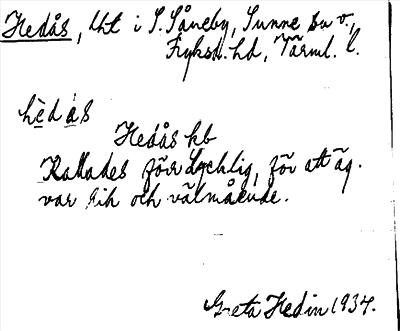 Hedås, Lht i S. Såneby, Sunne sn v.,
Fryksd. hd, Värml. l.
hèdȧs
Hedås kb
Kallades förr Lycklig, för att äg.
var rik och välmående.
Greta Hedin 1934.